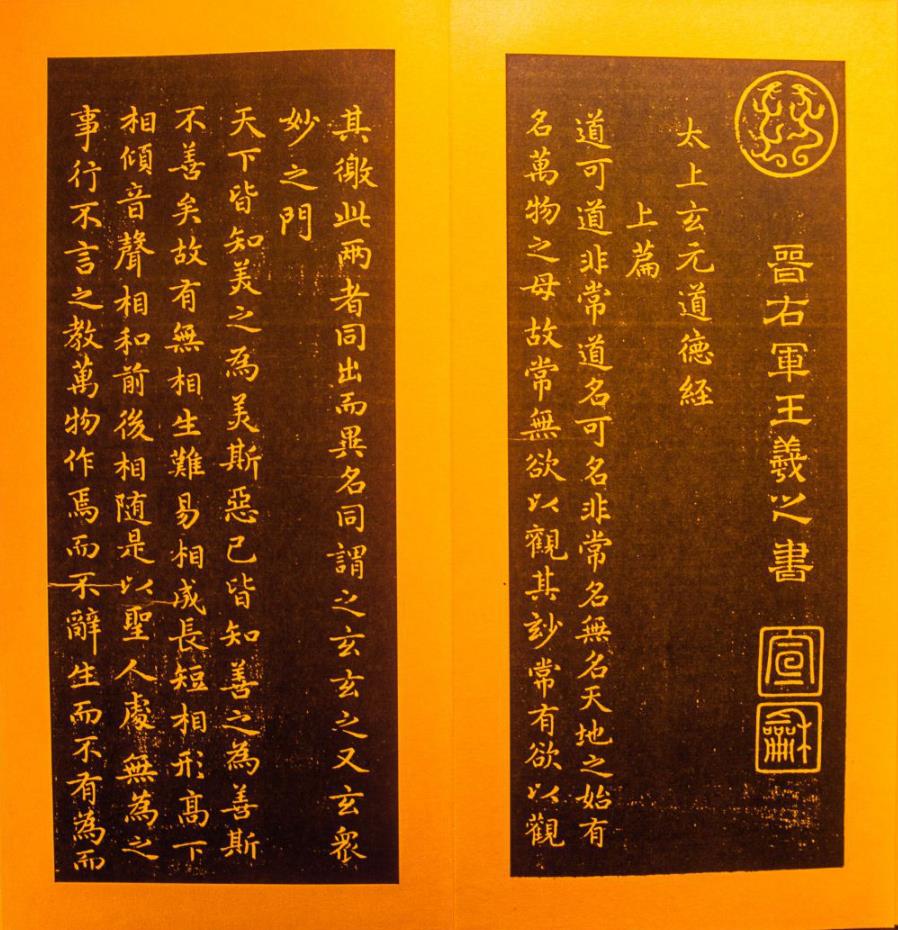 晉右軍王羲之書
宣
龢
太上玄元道德経
上篇
道可道非常道名可名非常名無名天地之始有
名萬物之母故常無欲以觀其玅常有欲以觀
其徼此兩者同出而異名同謂之玄玄之又玄眾
妙之門
天下皆知美之為美斯惡已皆知善之為善斯
不善矣故有無相生難易相成長短相形髙下
相傾音聲相和前後相随是以聖人處無為之
事行不言之教萬物作焉而不辭生而不有為而